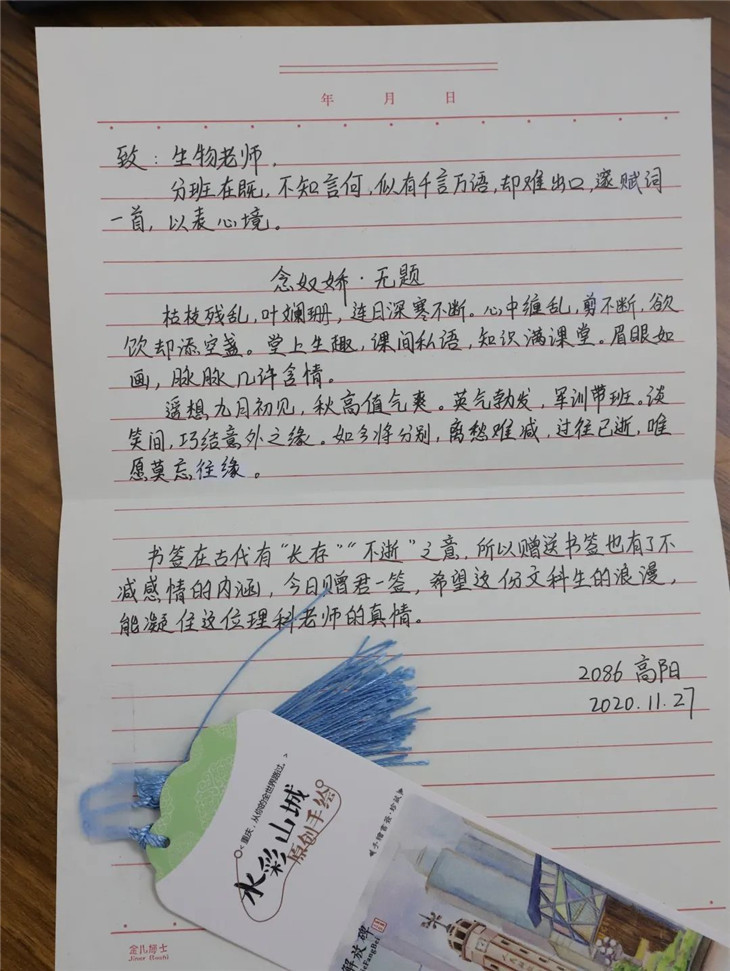 年 月 日
致：生物老师，
分班在既，不知言何，似有千言万语，却难出口，遂赋词
一首，以表心境。
念奴娇·无题
枯枝残乱，叶斓珊，连日深寒不断。心中缠乱，剪不断，欲
饮却添空盏。堂上生趣，课间私语，知识满课堂。眉眼如
画，脉脉几许含情。
遥想，九月初见，秋高值气爽。英气勃发，军训带班。谈
笑间，巧结意外之缘。如今将分别，离愁难减，过往已逝，唯
愿莫忘往缘。
书签在古代有“长存”“不逝”之意，所以赠送书签也有了不
减感情的内涵，今日赠君一签，希望这份文科生的浪漫，
能凝住这位理科老师的真情。
2086 高阳
2020.11.27
重庆，从你的全世界路过。
水彩山城
原创手绘
解放碑
JieFangBei
金儿博士